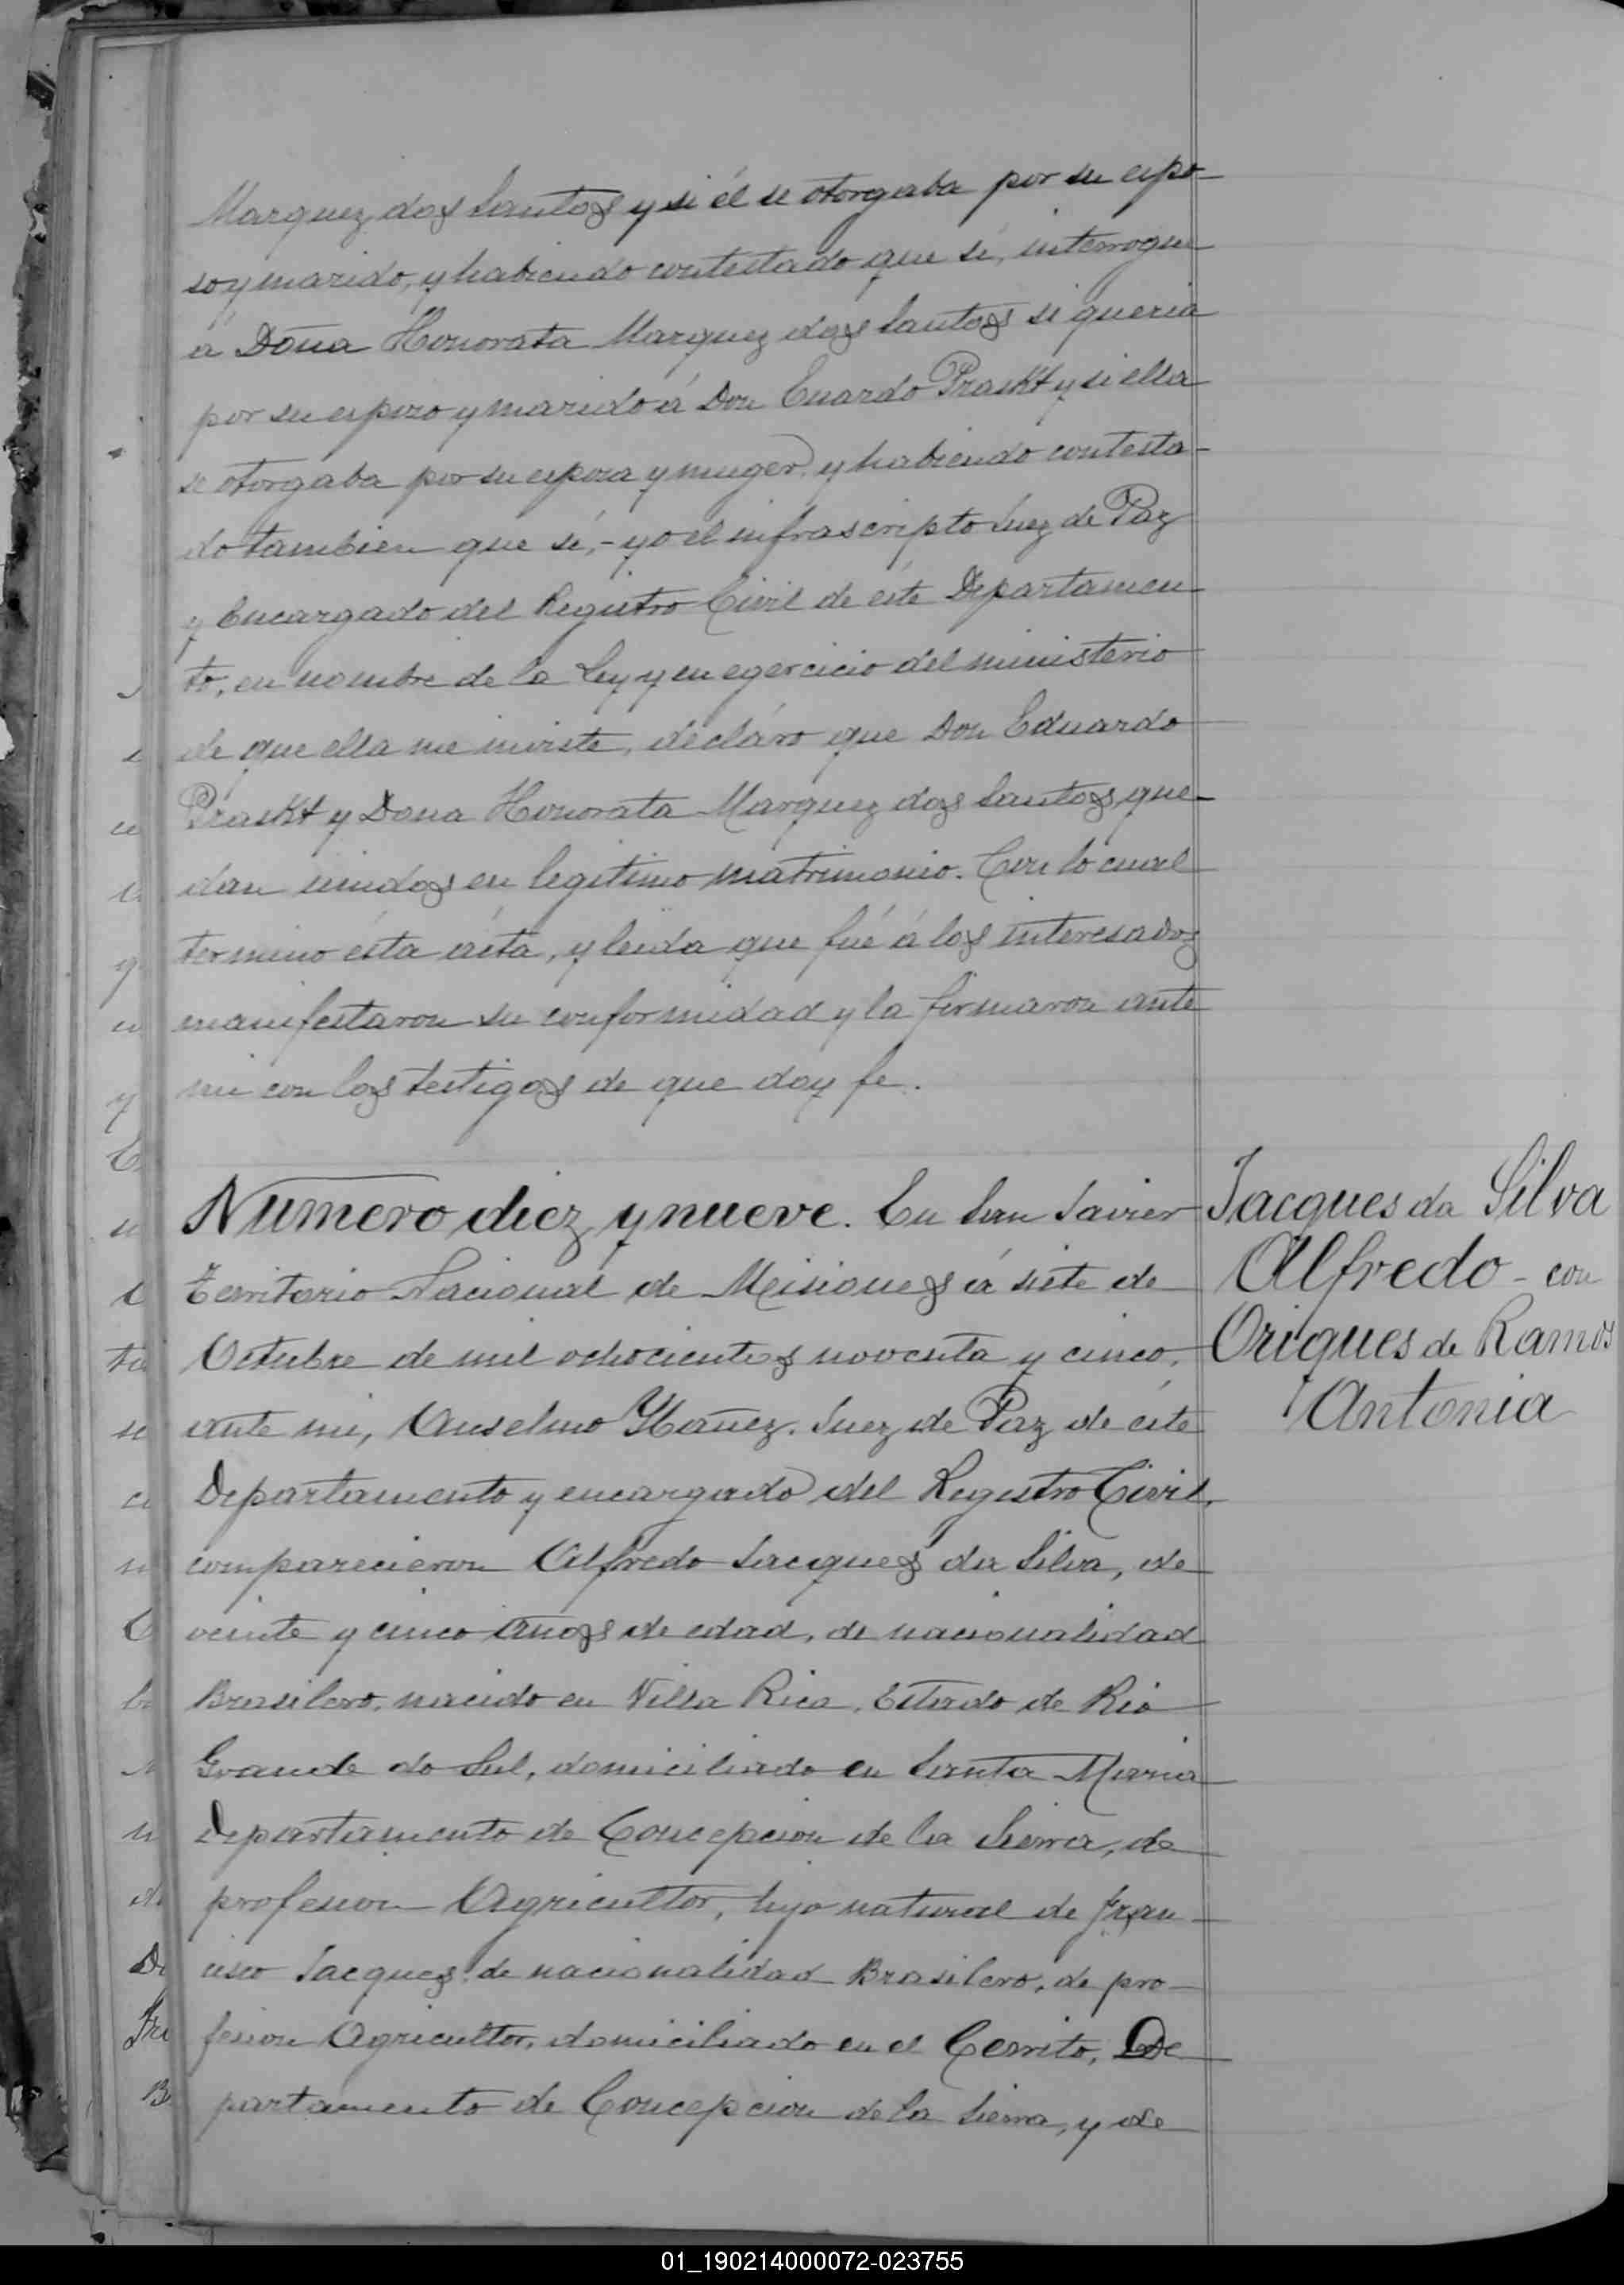 Marquez dos Santos y si él se otorgaba por su espo-
so y marido, y habiendo contestado que sí, interrogue
á Doña Honorata Marquez dos Santos si queria
por su esposo y marido á Don Euardo Prackt y si ella
se otorgaba por su esposa y muger, y habiendo contesta-
do tambien que sí,- yo el infrascripto Juez de Paz
y Encargado del Registro Civil de éste Departamen
to, en nombre de la Ley y en egercicio del ministerio
de que ella me inviste, decláro que Don Eduardo
Prackt y Dona Honorata Marquez dos Santos que-
dan unidos en legitimo matrimonio. Con lo cual
termino ésta acta, y leida que fué á los interesados
manifestaron su conformidad y la firmaron ante
mi con los testigos de que doy fe.
Numero diez y nueve. En San Javier
Territorio Nacional de Misiones á siete de
Octubre de mil ochocientos noventa y cinco,
ante mi, Anselmo Ybañez. Juez de Paz de éste
Departamento y encargado del Registro Civil,
comparecieron Alfredo Jacques da Silva, de
veinte y cinco años de edad, de nacionalidad
Brasilero, nacido en Villa Rica, Estado de Rio
Grande do Sul, domiciliado en Santa Maria
Departamento de Concepcion de la Sierra, de
profesion Agricultor, hijo natural de Fran-
cisco Jacques, de nacionalidad Brasilero, de pro-
fesion Agricultor, domiciliado en el Cerrito, De
partamento de Concepcion de la Sierra, y de
Jacques da Silva
Alfredo - con
Origues de Ramos
Antonia
01_190214000072-023755